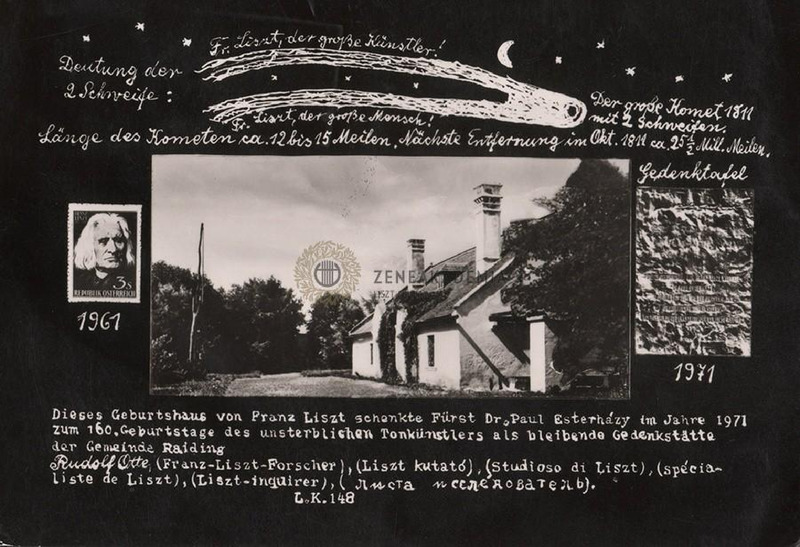 Fr. Liszt, der große Künstler!
Deutung der
2 Schweife:
Fr. Liszt, der große Mensch!
Der große Komet 1811
mit 2 Schweifen.
Länge des Kometen ca. 12 bis 15 Meilen, Nächste Entfernung im Okt. 1811 ca. 25 ½ Mill. Meilen.
Gedenktafel
3s
REPUBLIK ÖSTERREICH
1961
ZENEAKADÉMIA
1971
Dieses Geburtshaus von Franz Liszt schenkte Fürst Dr. Paul Esterházy im Jahre 1971
zum 160. Geburtstage des unsterblichen Tonkünstlers als bleibende Gedenkstätte
der Gemeinde Raiding
Rudolf Otte, (Franz-Liszt-Forscher), (Liszt kutató), (Studioso di Liszt), (spécia-
liste de Liszt), (Liszt-inquirer), ( листа исслелователь).
L.K. 148